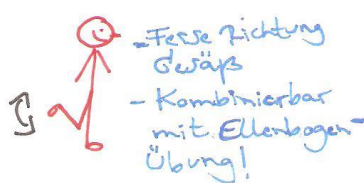 - Ferse Richtung
Gesäß
- Kombinierbar
mit Ellenbogen-
Übung!